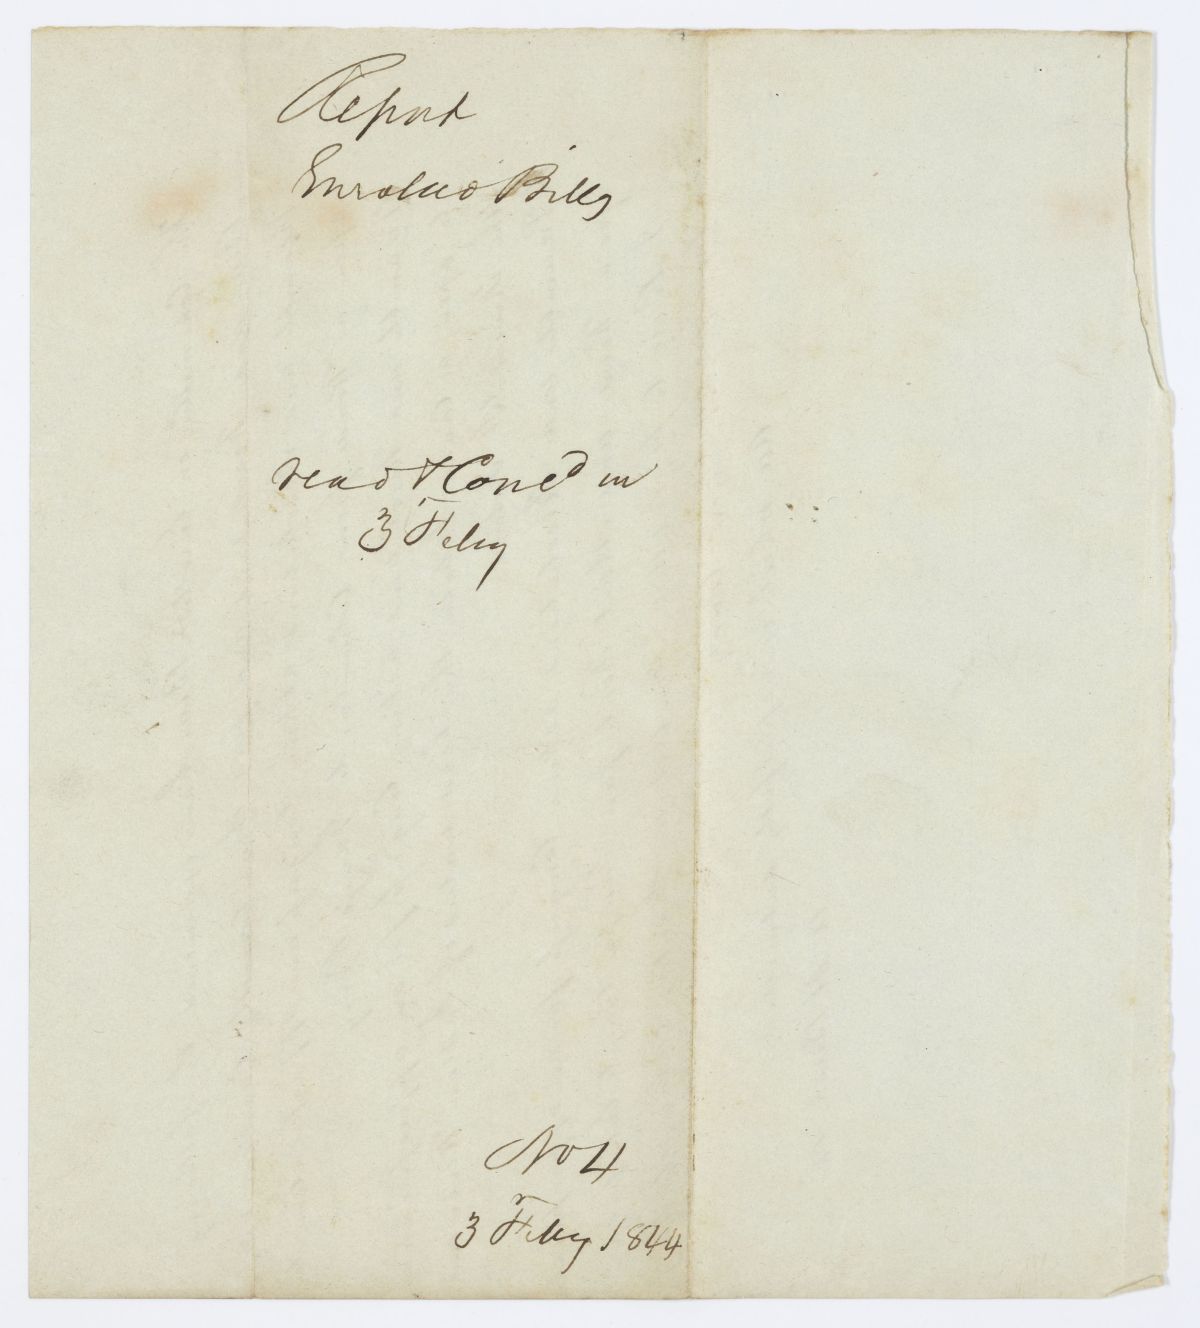 Report
Enrolled Bills
read & Conc'd in
3 Feby
No 4
3 Feby 1844